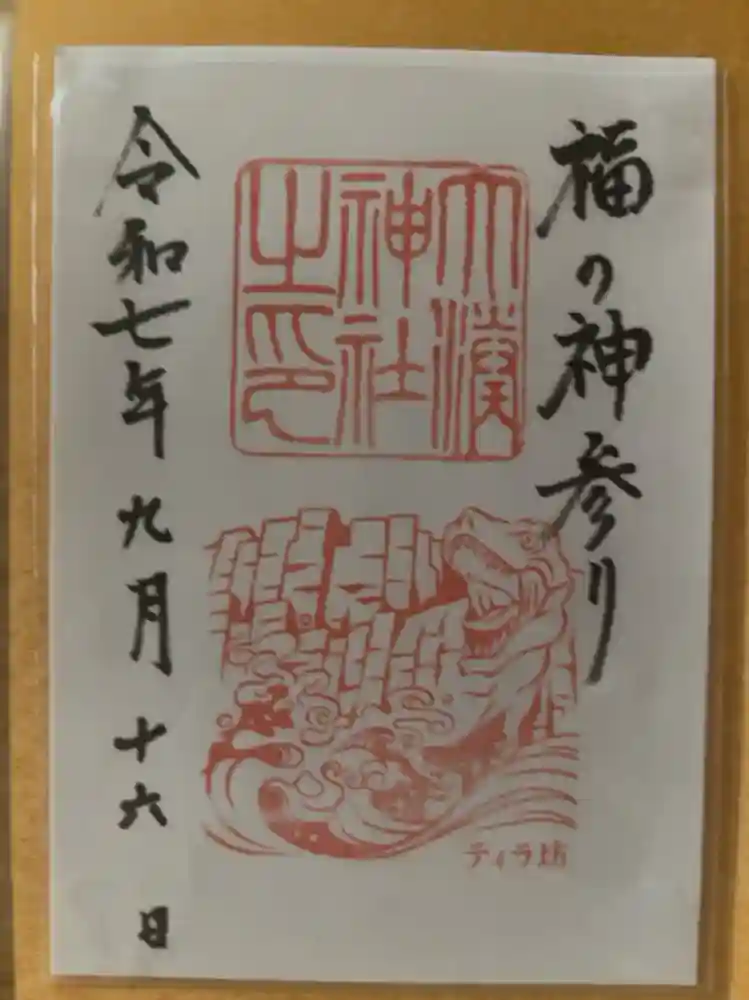 福の神参り
大濱
神社
之印
令和七年九月十六日
ティラ坊